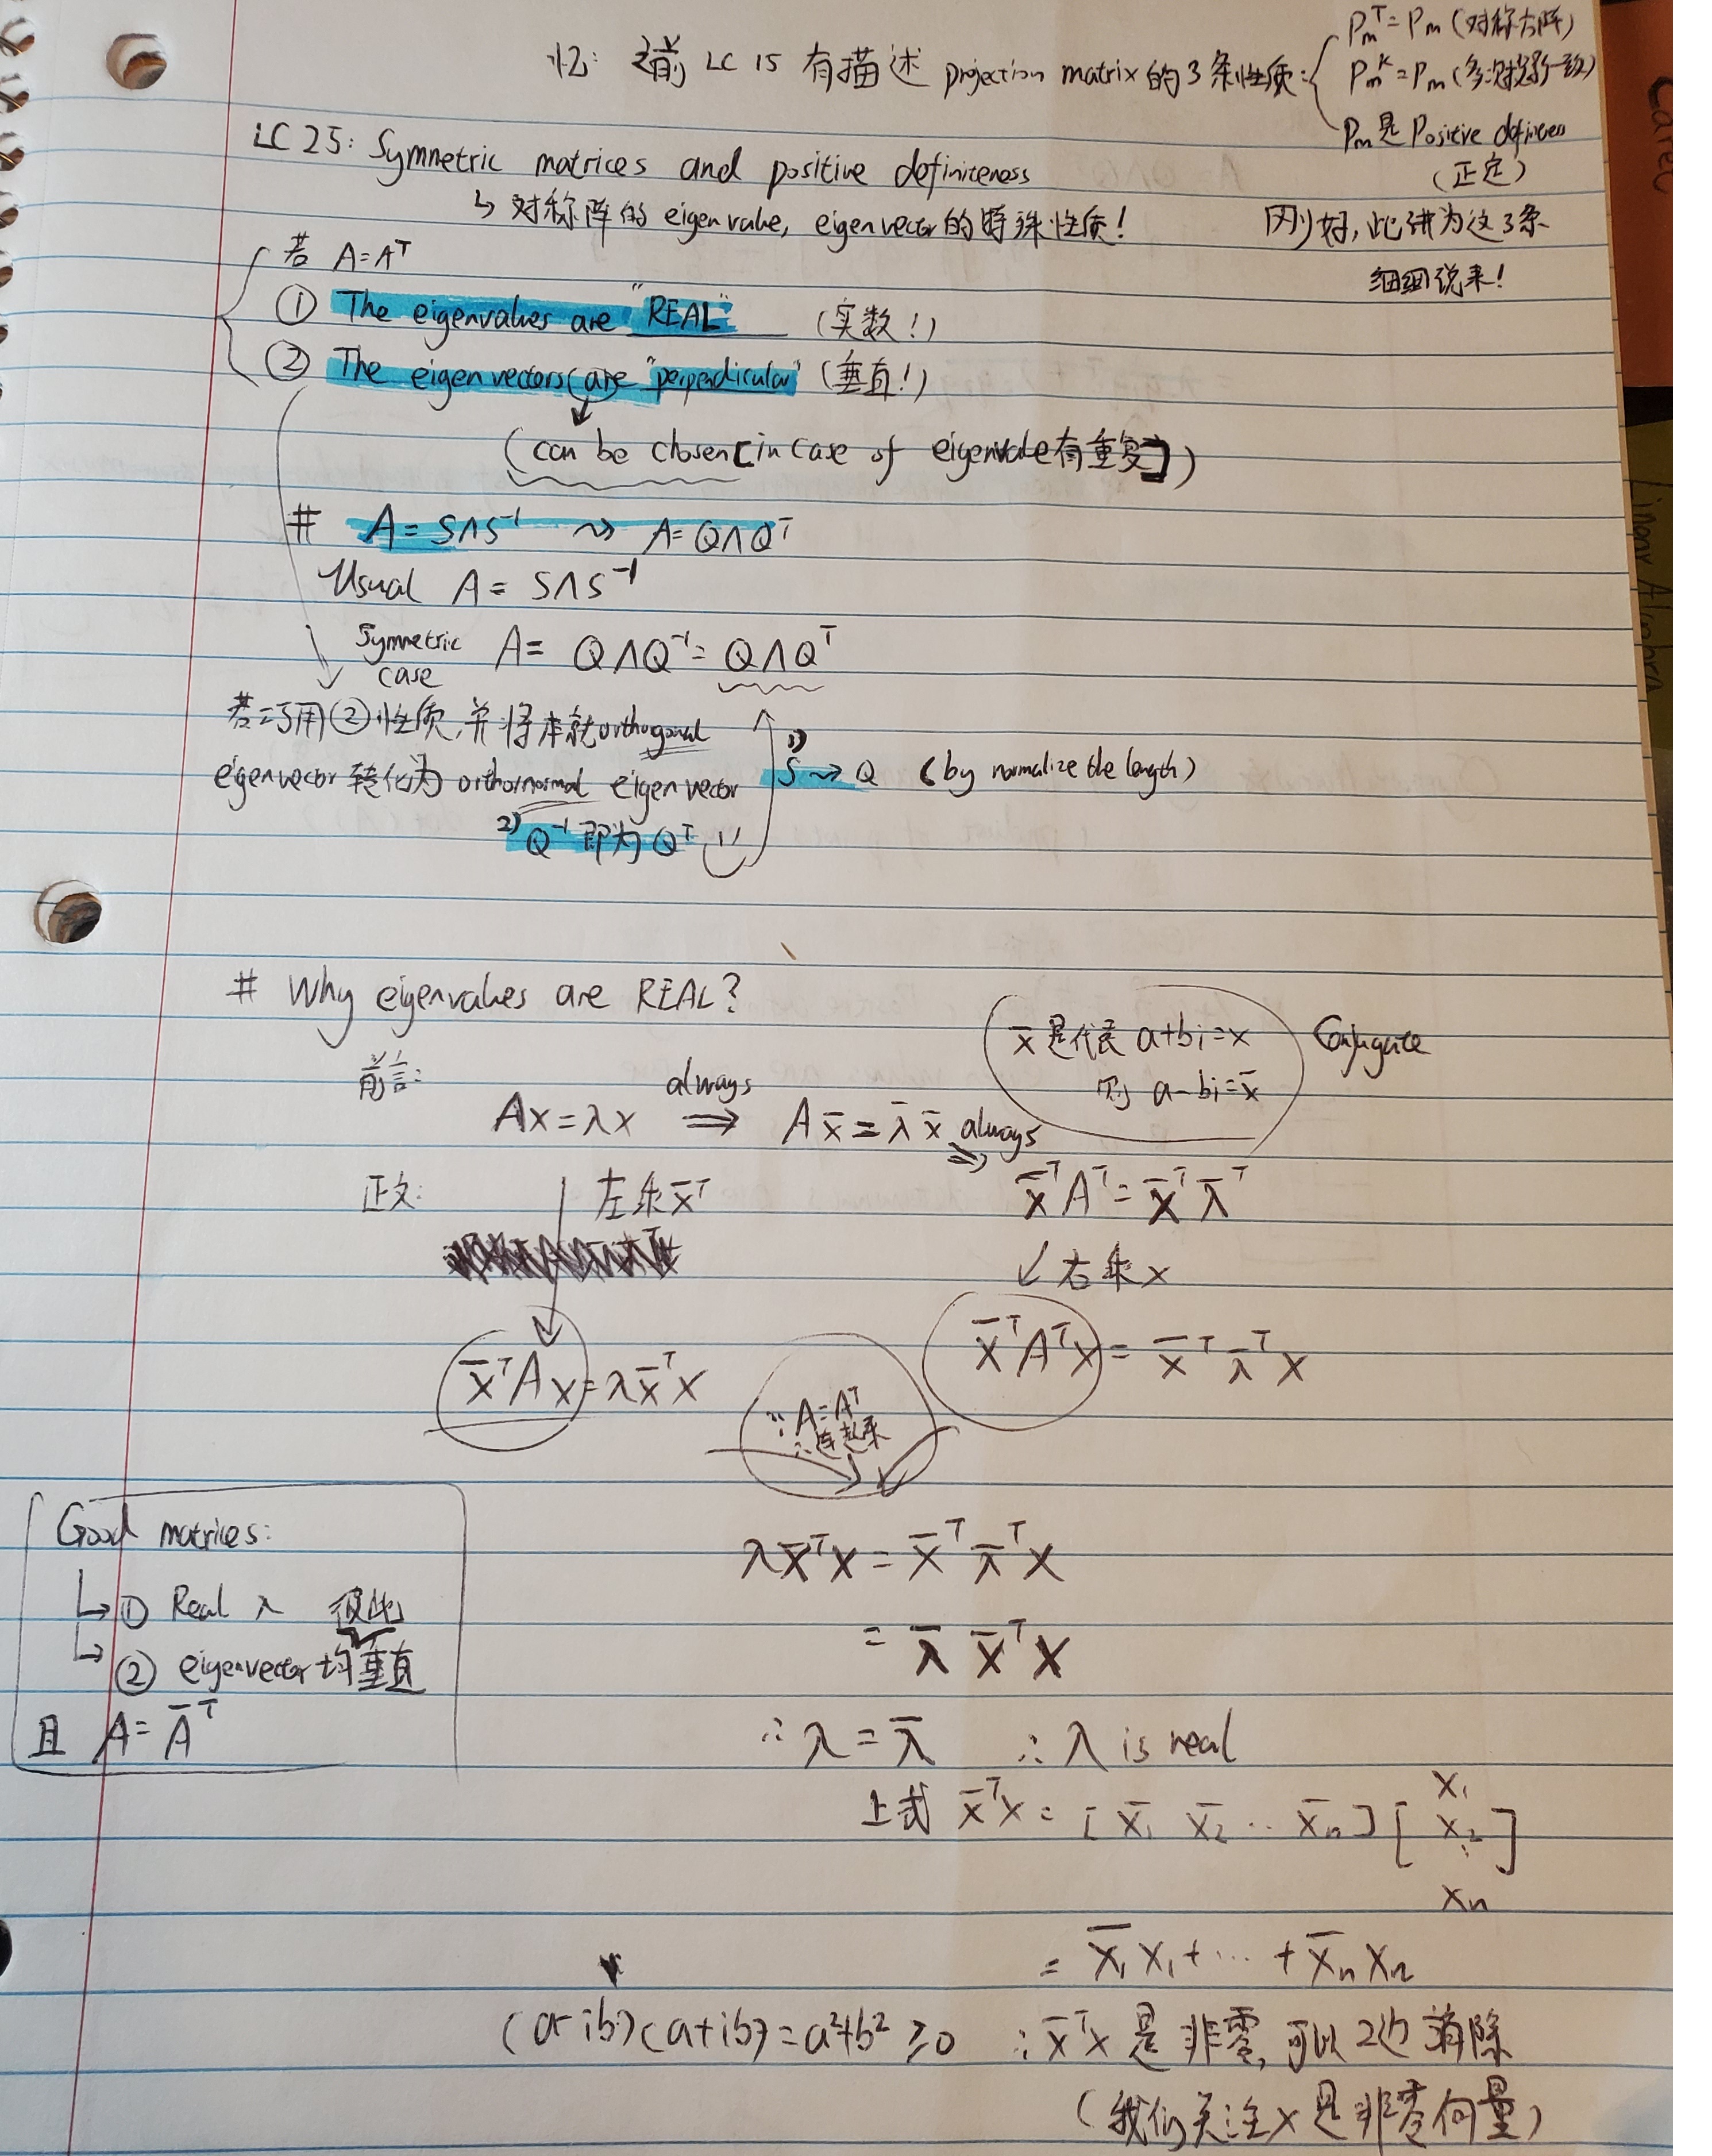 忆: 之前 LC 15 有描述 projection matrix 的 3 条性质:
Pm^T = Pm (对称方阵)
Pm^K = Pm (多次投影一致)
Pm 是 Positive definies
(正定)
刚好, 此讲为这3条
细细说来!
LC 25: Symmetric matrices and positive definiteness
↳ 对称阵的 eigenvalue, eigenvector的特殊性质!
若 A=A^T
① The eigenvalues are "REAL" (实数!)
② The eigenvectors are "perpendicular" (垂直!)
(can be chosen [in case of eigenvalue有重复])
# A = SΛS^-1 ⇝ A = QΛQ^T
Usual A = SΛS^-1
Symmetric case A = QΛQ^-1 = QΛQ^T
若巧用②性质, 并将本就orthogonal
eigenvector 转化为 orthornormal eigenvector
1) S ⇝ Q (by normalize the length)
2) Q^-1 即为 Q^T
# Why eigenvalues are REAL?
x̄ 是代表 a+bi=x
则 a-bi=x̄
Conjugate
前言:
Ax=λx always ⇒ Ax̄ = λ̄x̄ always ⇒
x̄^T A^T = x̄^T λ̄^T
正文: 左乘 x̄^T
↙ 右乘 x
x̄^T A x = λ x̄^T x
x̄^T A^T x = x̄^T λ̄^T x
∵ A=A^T
∴ 连起来
λ x̄^T x = x̄^T λ̄^T x
= λ̄ x̄^T x
∴ λ = λ̄ ∴ λ is real
Good matrices:
↳ ① Real λ
彼此
↳ ② eigenvector 均垂直
且 A = Ā^T
上式 x̄^T x = [x̄1 x̄2 ·· x̄n] [x1 x2 ⋮ xn]
= x̄1 x1 + ··· + x̄n xn
(a-ib)(a+ib) = a²+b² ≥0 ∴ x̄^T x 是非零, 可以2边消除
(我们关注x是非零向量)